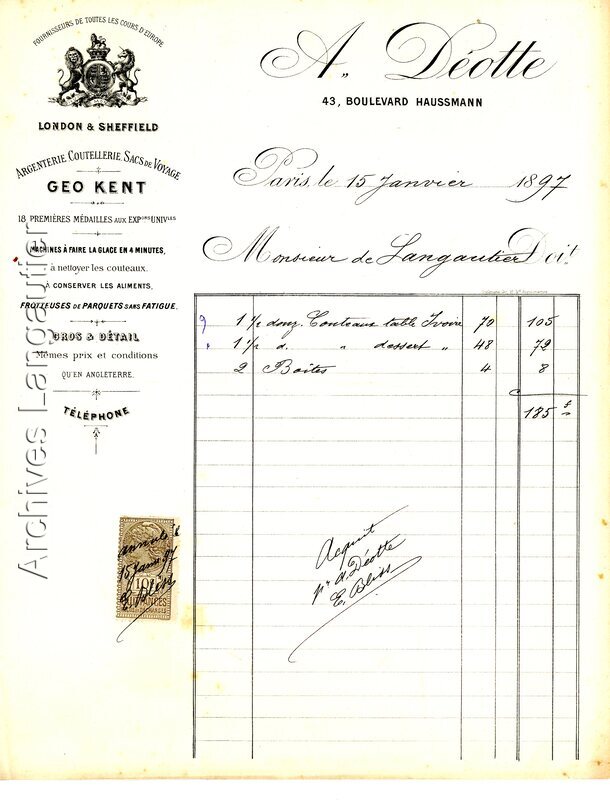 FOURNISSEURS DE TOUTES LES COURS D'EUROPE
LONDON & SHEFFIELD
ARGENTERIE, COUTELLERIE, SACS DE VOYAGE
GEO KENT
18 PREMIÈRES MÉDAILLES AUX EXPons UNIVles
MACHINES À FAIRE LA GLACE EN 4 MINUTES,
à nettoyer les couteaux.
À CONSERVER LES ALIMENTS,
FROTTEUSES DE PARQUETS SANS FATIGUE.
GROS & DÉTAIL
Mêmes prix et conditions
QU'EN ANGLETERRE.
TÉLÉPHONE
A. Déotte
43, BOULEVARD HAUSSMANN
Paris, le 15 Janvier 1897
Monsieur de Langautier Doit
1 1/2 douz. Couteaux table Ivoire 70 105
1 1/2 d. " dessert " 48 72
2 Boites 4 8
185 f
Acquit
pr A. Déotte
E. Bliss
annulé le
15 Janv 97
E. Bliss
10c
QUITTANCES
Archives Langautier